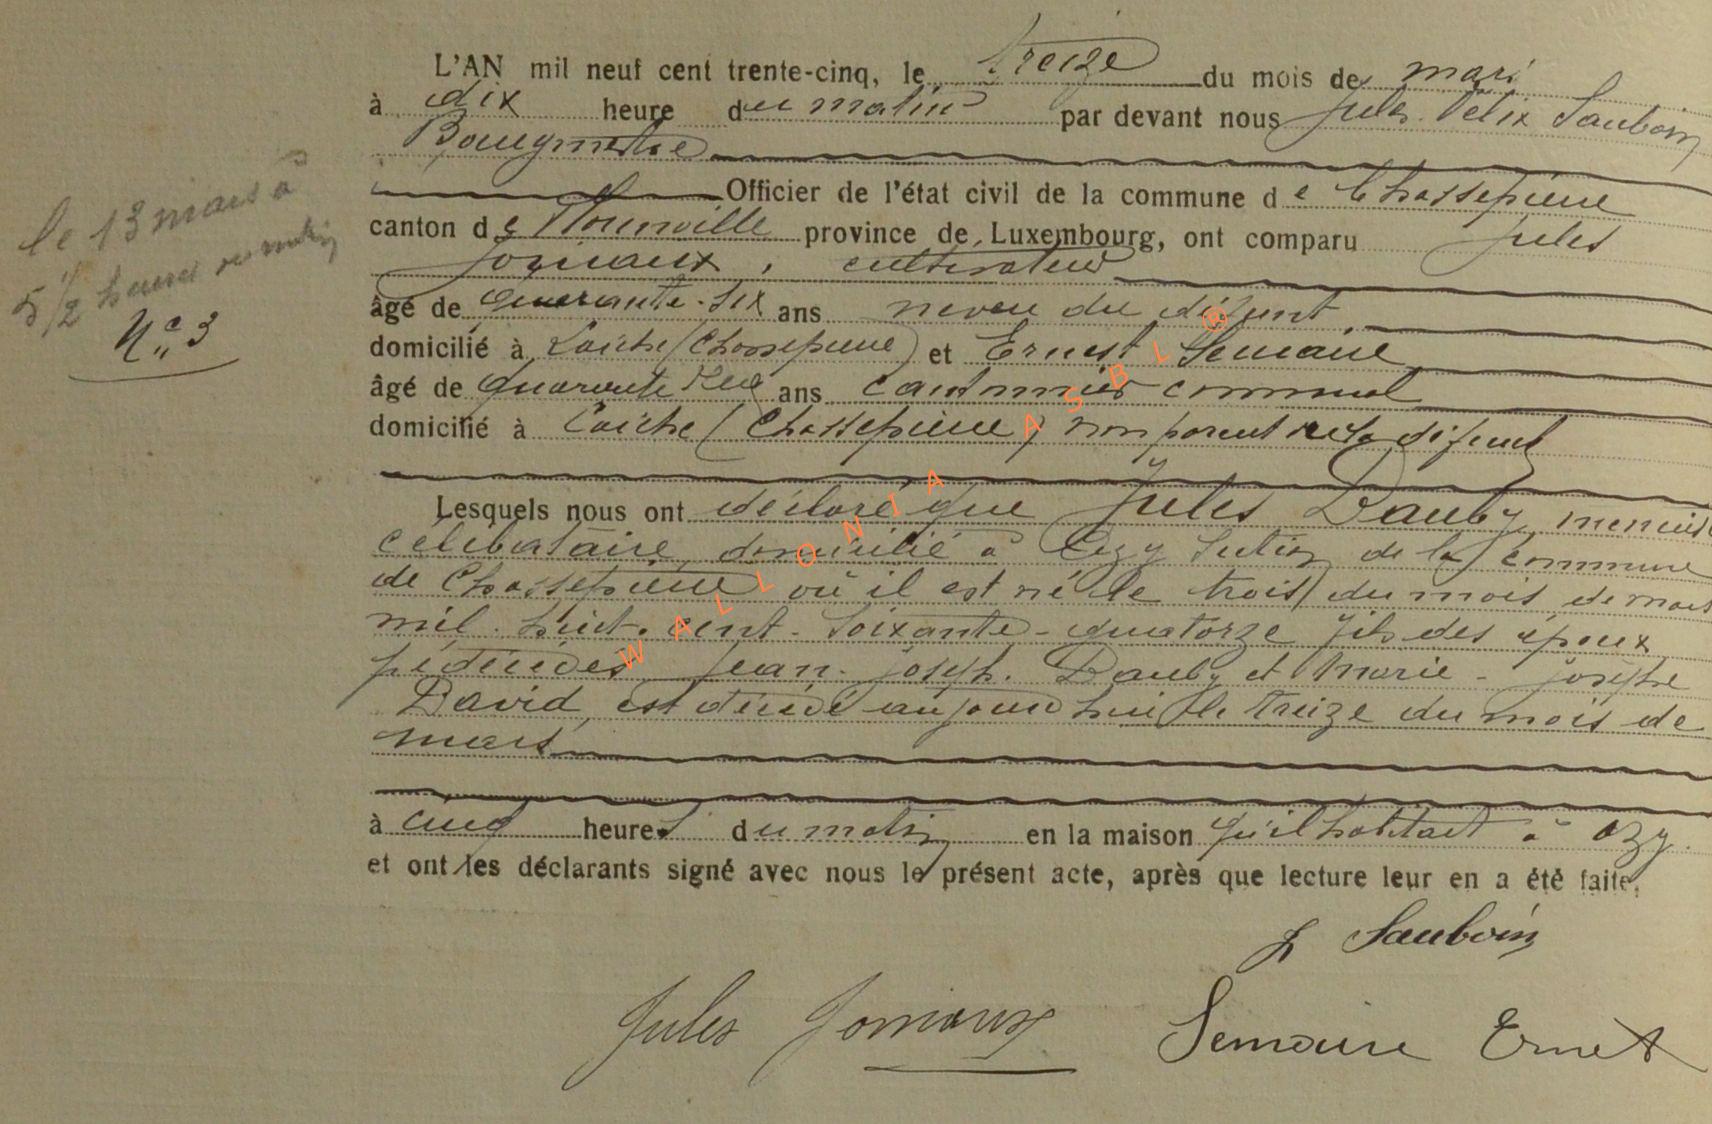 L'AN mil neuf cent trente-cinq, le treize du mois de mars
à dix heure du matin par devant nous Jules Félix Sauboin
Bourgmestre
le 13 mars à
5 1/2 heures du matin
N° 3
Officier de l'état civil de la commune de Chassepierre
canton de Florenville province de Luxembourg, ont comparu Jules
Joniaux, cultivateur
âgé de quarante-six ans neveu du défunt
domicilié à Laiche (Chassepierre) et Ernest Semaire
âgé de quarante ans cantonnier communal
domicilié à Laiche (Chassepierre) non parent du défunt
Lesquels nous ont déclaré que Jules Dauby, menuisier
célibataire, domicilié à Azy section de la commune
de Chassepierre où il est né le trois du mois de mars
mil-huit-cent-soixante-quatorze fils des époux
décédés Jean-Joseph Dauby et Marie-Josèphe
David, est décédé aujourd'hui le treize du mois de
mars
à cinq heures du matin en la maison qu'il habitait à Azy.
et ont les déclarants signé avec nous le présent acte, après que lecture leur en a été faite.
Sauboin
Jules Joniaux Semaire Ernest
WALLONIA ASBL ®